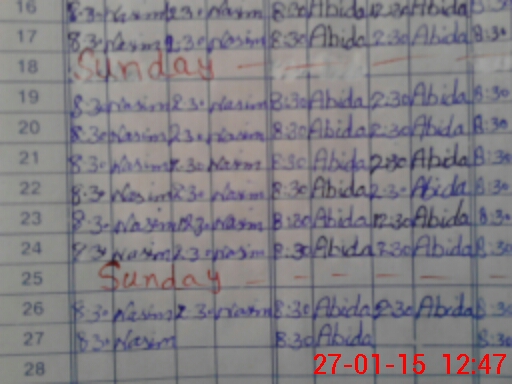 16 8:30 Nasim 2.30 Nasim 8:30 Abida 2.30 Abida 8:30
17 8:30 Nasim 2.30 Nasim 8:30 Abida 2:30 Abida 8:30
18 Sunday
19 8:30 Nasim 2.30 Nasim 8:30 Abida 2:30 Abida 8:30
20 8:30 Nasim 2.30 Nasim 8:30 Abida 2:30 Abida 8:30
21 8:30 Nasim 2.30 Nasim 8:30 Abida 2:30 Abida 8:30
22 8:30 Nasim 2.30 Nasim 8:30 Abida 2:30 Abida 8:30
23 8:30 Nasim 12.30 Nasim 8:30 Abida 12.30 Abida 8:30
24 8:30 Nasim 2.30 Nasim 8:30 Abida 2.30 Abida 8:30
25 Sunday
26 8:30 Nasim 2.30 Nasim 8:30 Abida 2:30 Abida 8:30
27 8:30 Nasim 8:30 Abida 8:30
28
27-01-15 12:47